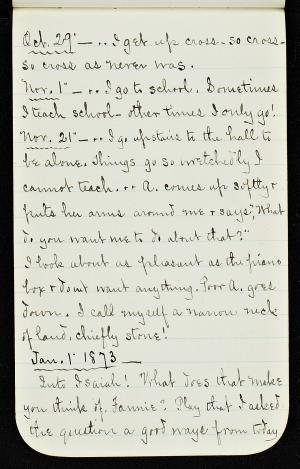 Oct. 29' — .. I get up cross - so cross -
so cross as never was.
Nov. 1" — .. I go to school. Sometimes
I teach school - other times I only go!
Nov. 21" — .. I go upstairs to the hall to
be alone. Things go so wretchedly I
cannot teach. .. A. comes up softly &
puts her arms around me & says, "What
do you want me to do about that?"
I look about as pleasant as the piano
box & don't want anything. Poor A. goes
down. I call myself a narrow neck
of land, chiefly stone!
Jan. 1' 1873 —
Into Isaiah! What does that make
you think of, Fannie? Play that I asked
the question a good ways from today